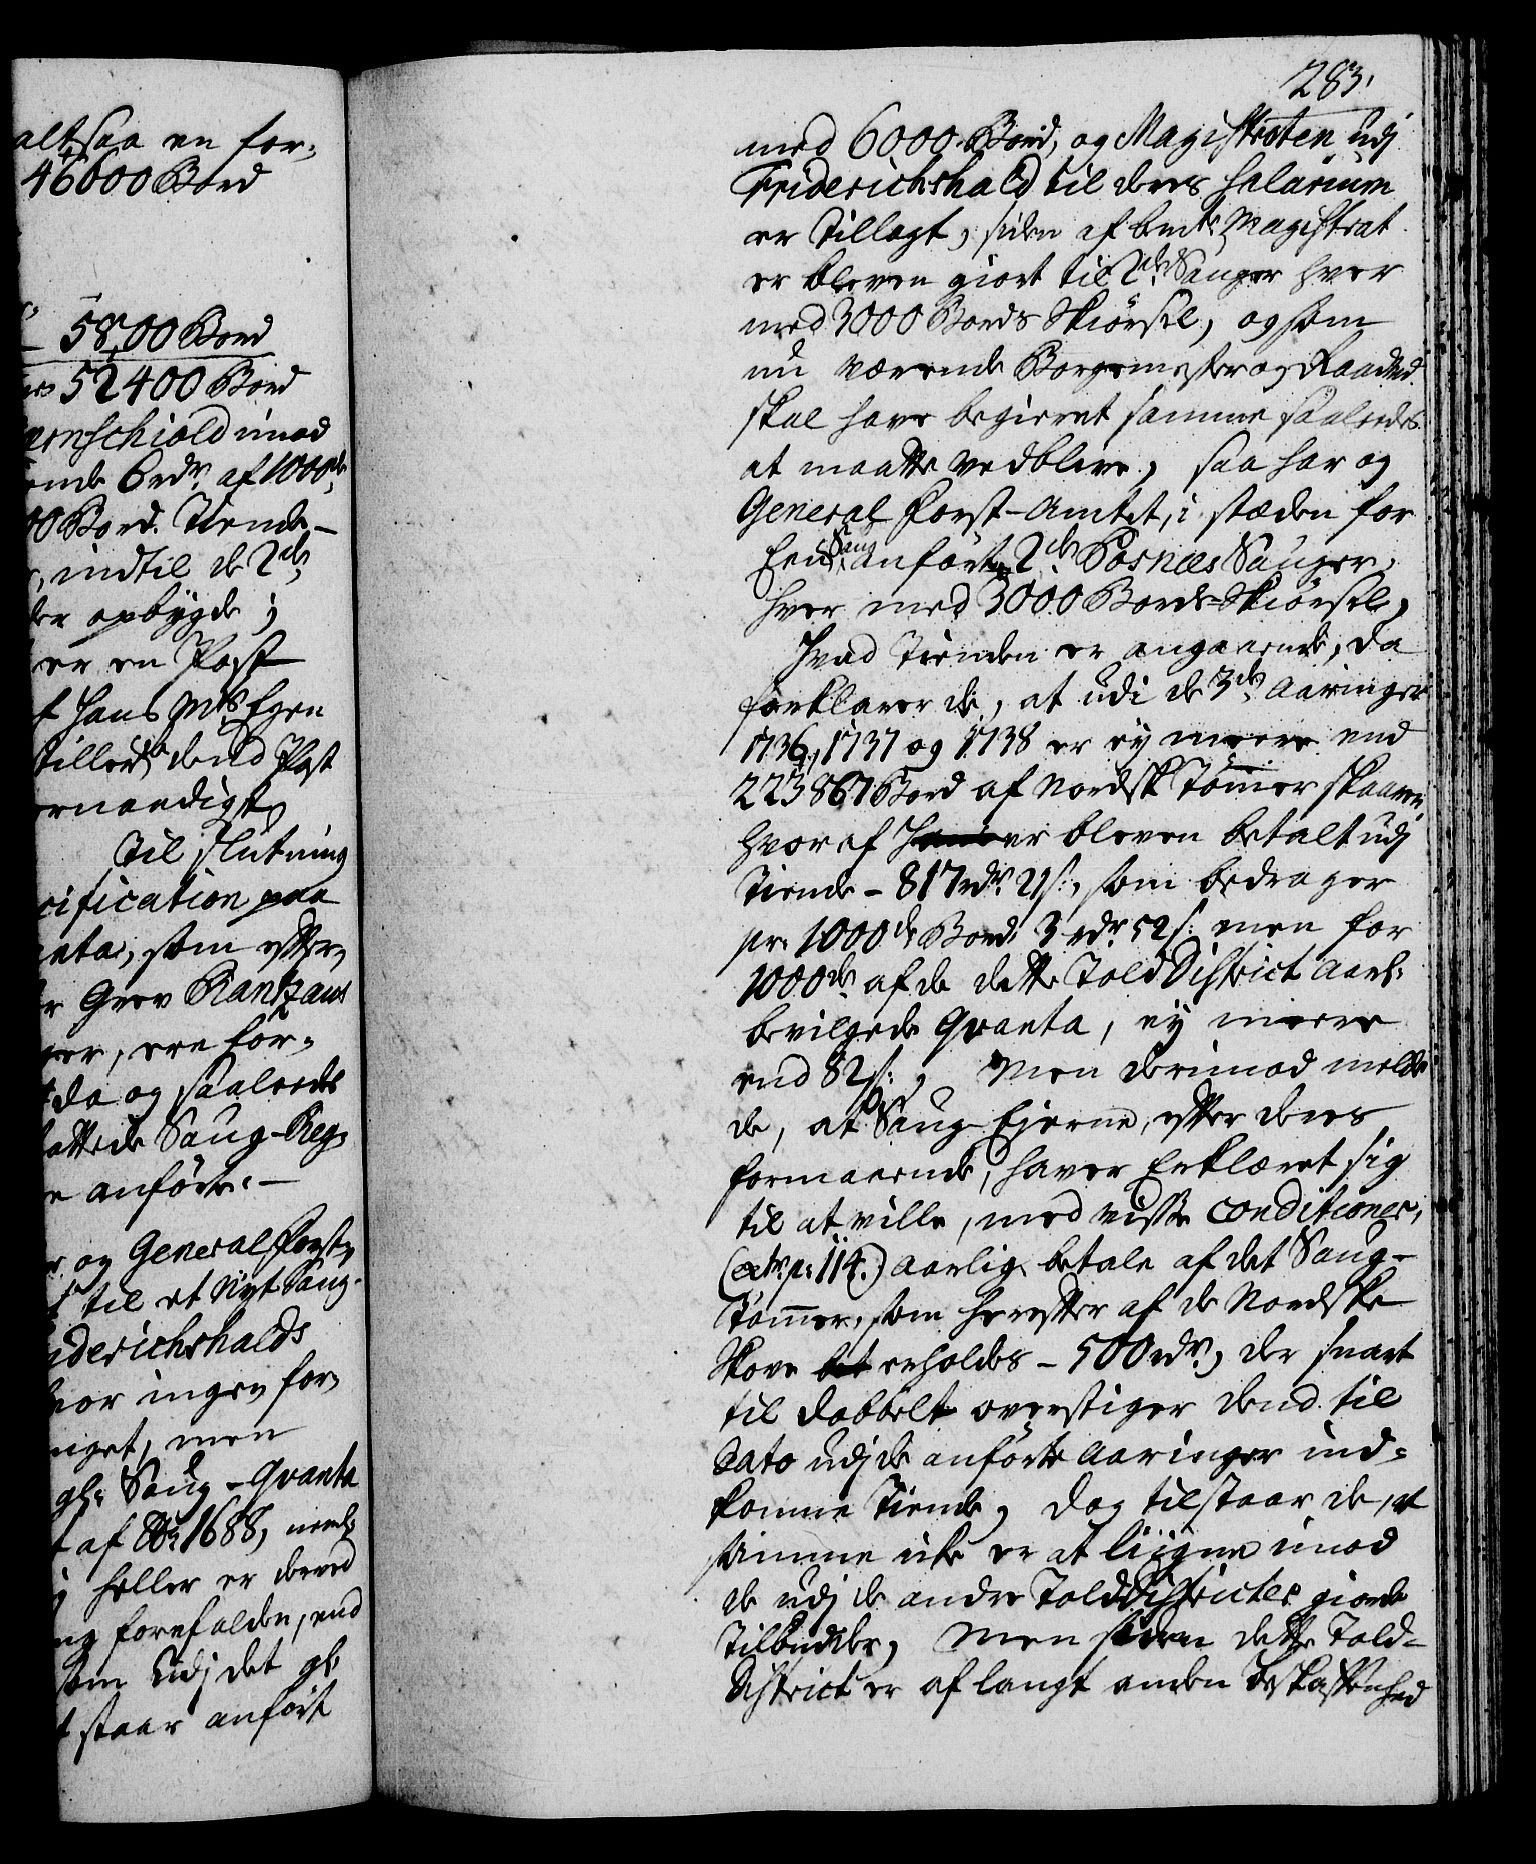 altsaa en for-
46000 Bord
5800 Bord
52400 Bord
ernschiold imod
6 rdr. af 1000de
Bord. Tiende
indtil de 2de
opbygde;
er en Post
Hans Mts Egen
dend Post
Til slutning
cification paa
som efter
Grev Rantzaus
ere for-
da og saaledes
Saug-Reg-
anförte.
og General Forst-
til et Nyt Saug-
iderichshalds
ingen for-
men
Saug-Qvanta
af Ao 1688, neml:
heller er derved
forefalden, end
som udj det gl:
staar anfört
283.
med 6000 Bord, og Magistraten udj
Friderichshald til deres Salarium
er tillagt, siden af bmte Magistrat
er bleven giort til 2de Sauger hver
med 3000 Bords Skiörsel, og som
nu værende Borgemester og Raadmd.
skal have begieret samme saaledes
at maatte vedblive, saa har og
General Forst-Amtet, i stæden for
Een Saug anfört 2de Posnæs Sauger,
hver med 3000 Bords-Skiörsel,
Hvad Tienden er angaaende, da
forklarer de, at udi de 3de Aaringer
1736, 1737 og 1738 er ey meere end
223867 Bord af Nordsk Tömmer skaaren,
hvoraf er bleven betalt udj
Tiende - 817 rdr. 21 s:, som bedrager
pr. 1000de Bord 3 rdr. 52 s: men for
1000de af de dette Told District Aarl:
bevilgede Qvanta, ey meere
end 82 s:, Men derimod melde
de, at Saug-Ejerne, efter deres
formaaende, haver Erklæret sig
til at ville, med visse conditioner,
(extr. p: 114.) aarlig betale af det Saug-
Tömmer, som herefter af de Nordske
Skove erholdes - 500 rdr., der snart
til dobbelt overstiger dend til
Dato udj de anförte Aaringer ind-
komne Tiende, dog tilstaar de, at
samme icke er at liigne imod
de udj de andre Told Districter giorde
Tilbudder, Men som dette Told-
District er af langt anden Beskaffenhed